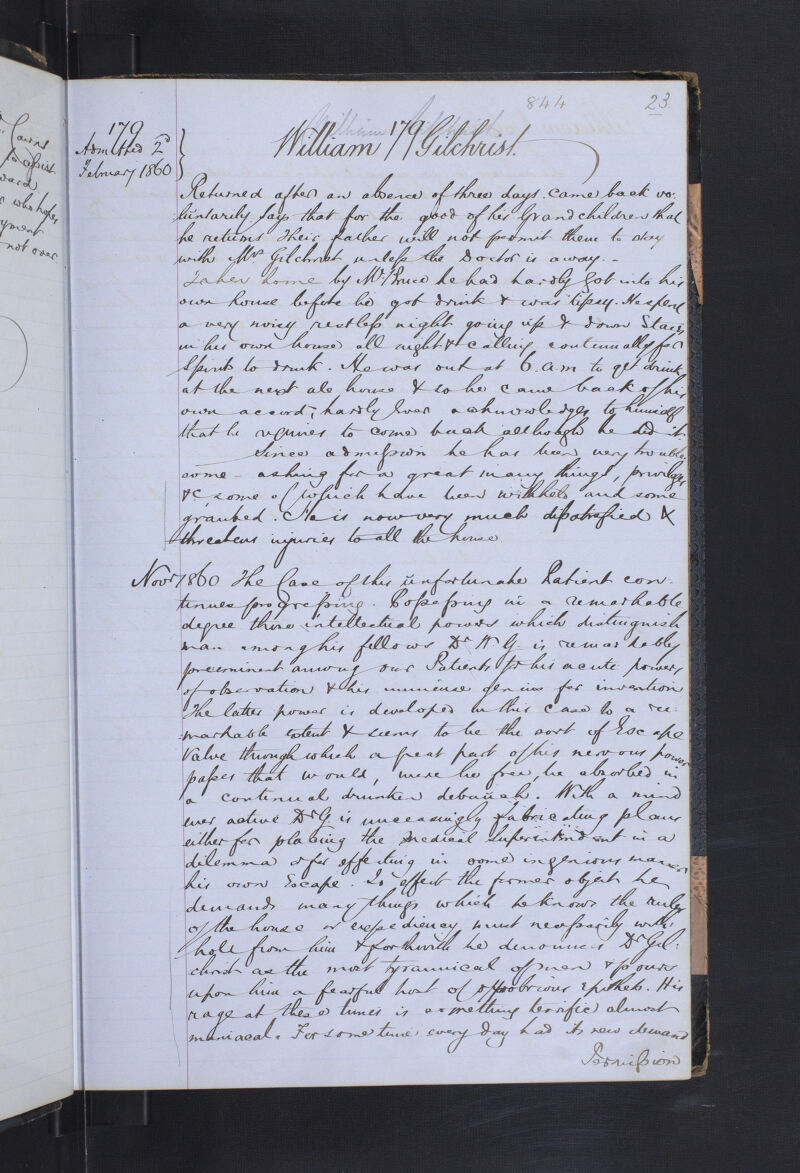 844
23.
179
Admitted 2d
February 1860
William 179 Gilchrist.
Returned after an absence of three days. came back vo-
luntarily says that for the good of his Grandchildren that
he returns their father will not permit them to stay
with Mrs Gilchrist unless the Doctor is away. -
Taken home by Mr Bruce he had hardly got into his
own house before he got drink & was tipsy. He spent
a very noisy restless night going up & down Stairs
in his own house all night & calling continually for
Spirits to drink. He was out at 6 a.m to get drink
at the next ale house & so he came back of his
own accord, hardly ever acknowledges to himself
that he requires to come back although he did it.
Since admission he has been very trouble-
some - asking for a great many things, privileges
&c, some of which have been withheld and some
granted. He is now very much dissatisfied &
threatens injuries to all the house.
Novr 1860 The Case of this unfortunate Patient con-
tinues progressing. Possessing in a remarkable
degree those intellectual powers which distinguish
man among his fellows Dr W. G. is remarkably
preeminent among our Patients for his acute powers
of observation & his immense genius for invention
The latter power is developed in this case to a re-
markable extent & seems to be the sort of Escape
Valve through which a great part of his nervous power
passes that would, were he free, be absorbed in
a continual drunken debauch. With a mind
ever active Dr G. is unceasingly fabricating plans
either for placing the Medical Superintendent in a
dilemma or for effecting in some ingenious manner
his own Escape. To effect the former object he
demands many things which he knows the rules
of the house or expediency must necessarily with-
hold from him & forthwith he denounces Dr Gil-
christ as the most tyrannical of men & pours
upon him a fearful host of opprobrious Epithets. His
rage at these times is something terrific almost
maniacal. For some time every day had its new demand
Permission
Cairns
ward
who hopes
not over